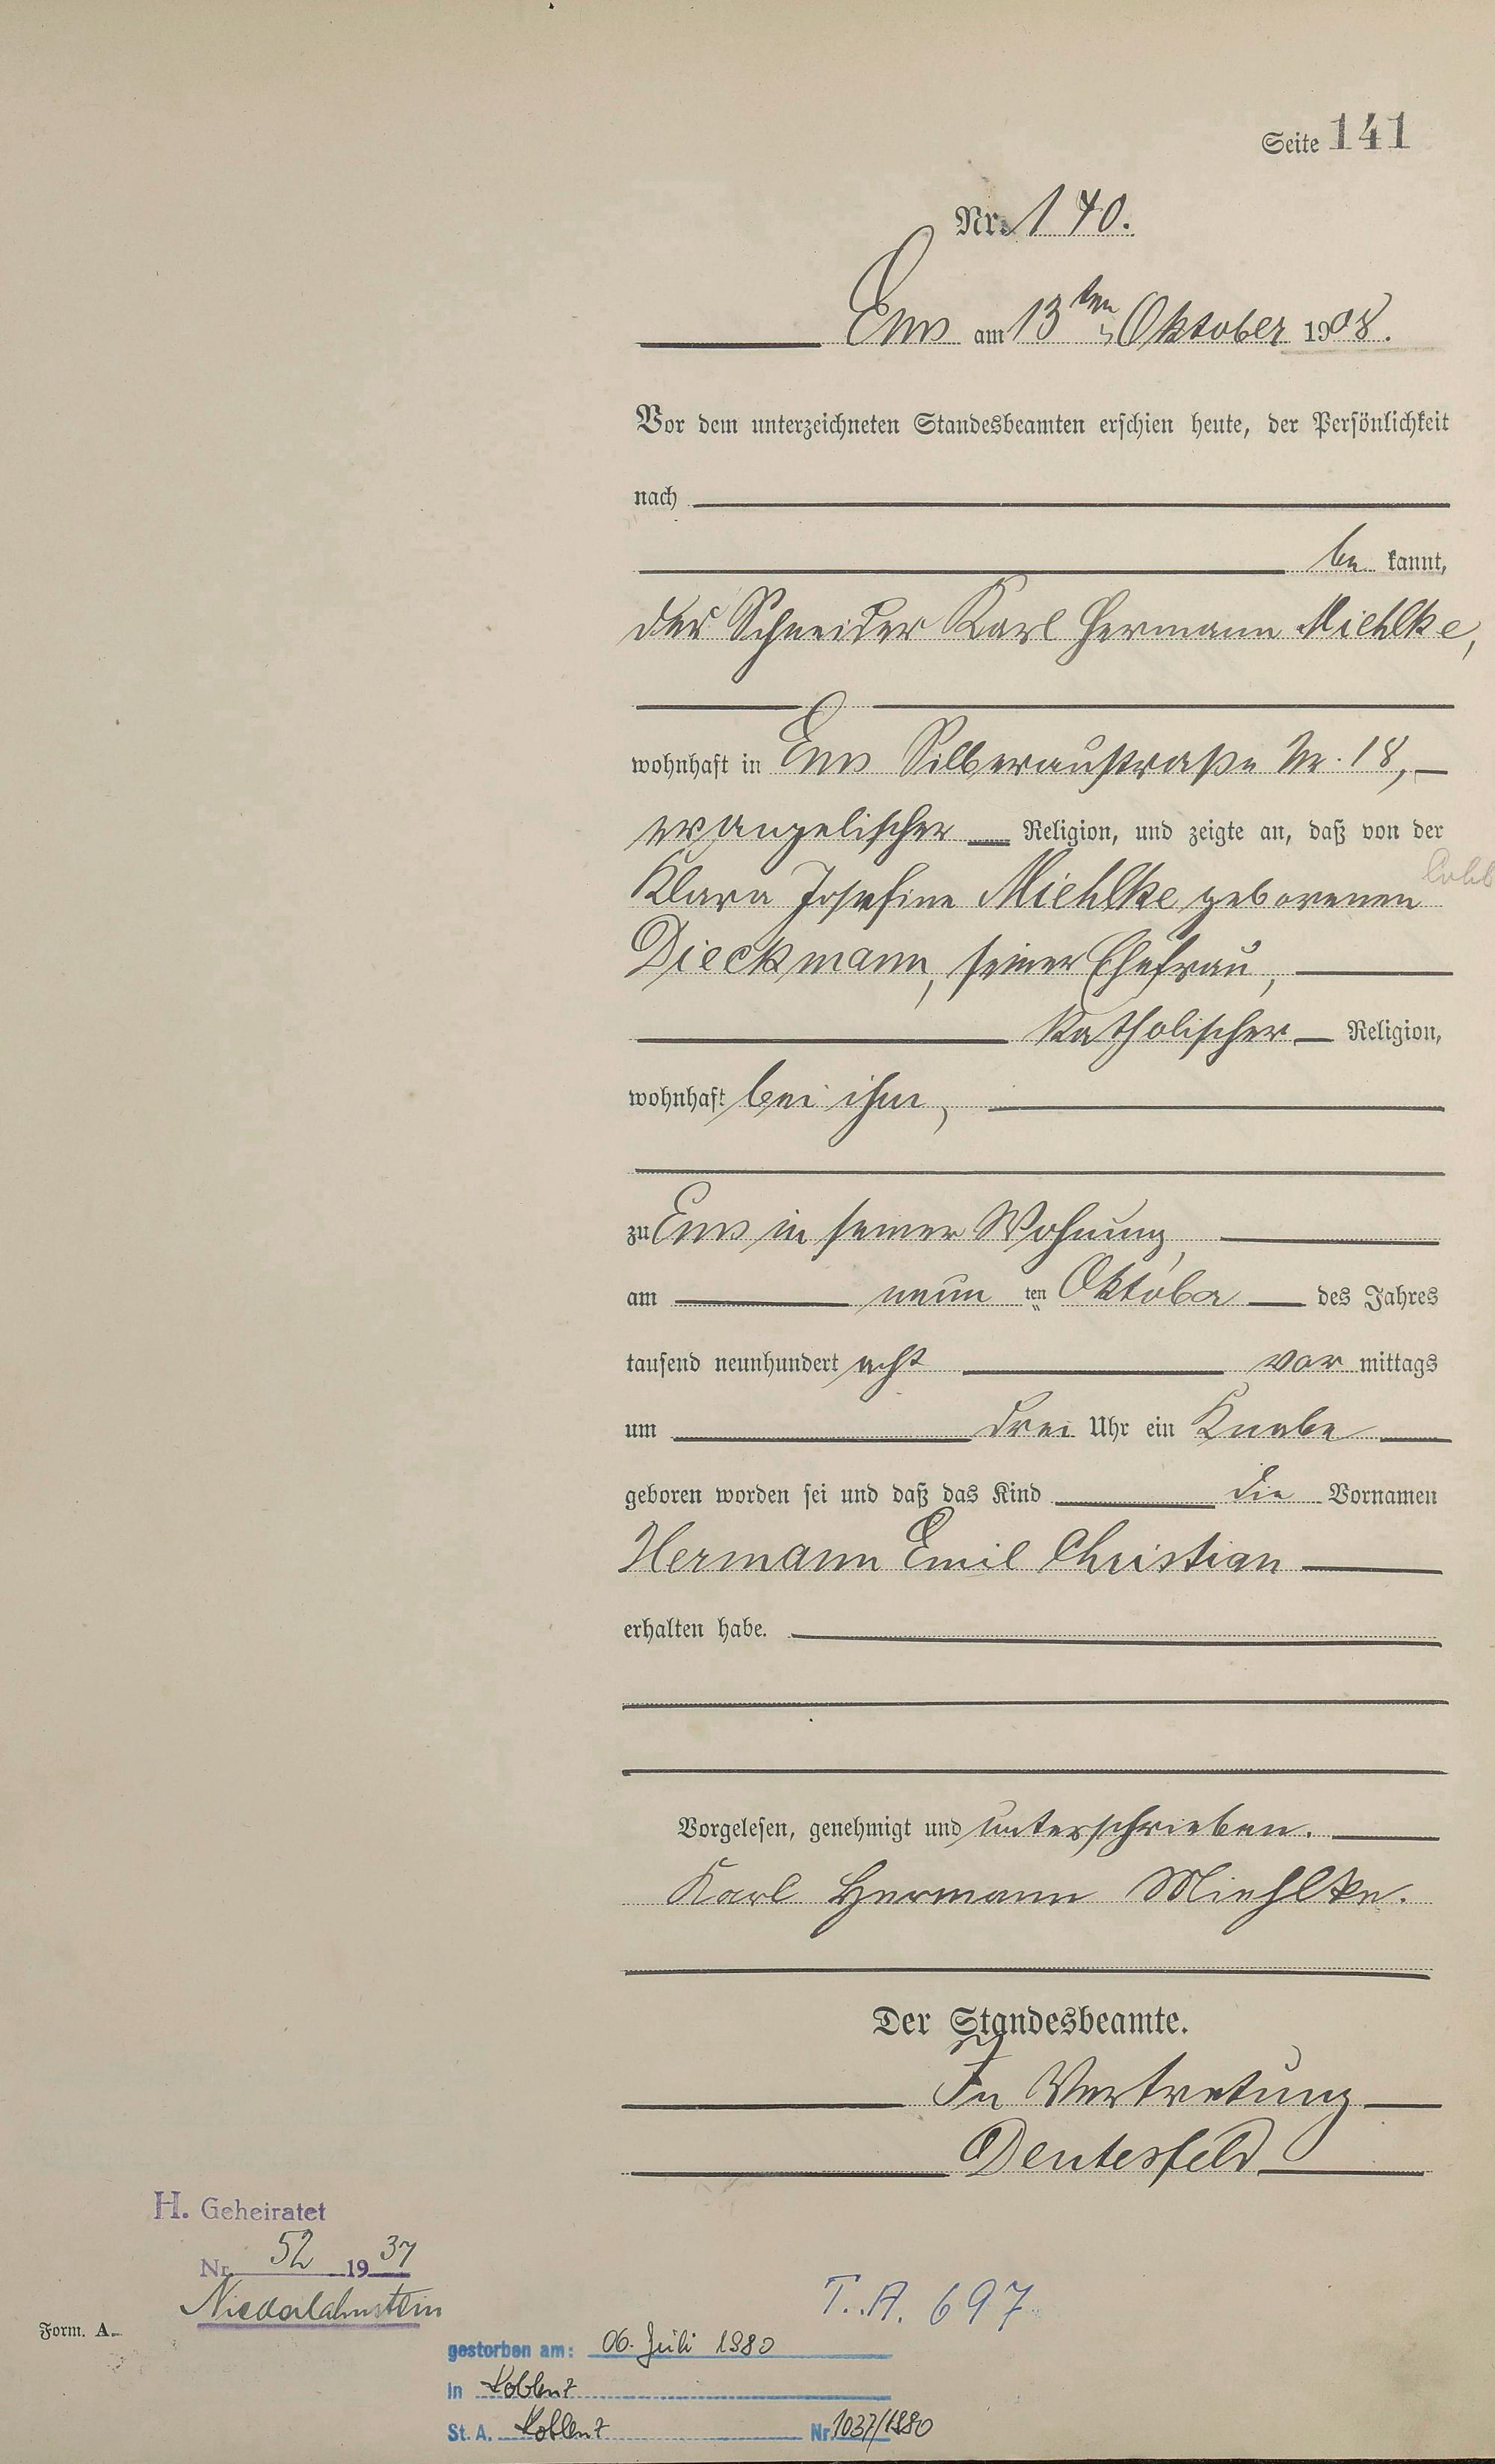 Seite 141
Nr. 140.
Ems am 13ten Oktober 1908.
Vor dem unterzeichneten Standesbeamten erschien heute, der Persönlichkeit
nach
be kannt,
der Schneider Karl Hermann Miehlke,
wohnhaft in Ems Silberaustraße Nr. 18,
evangelischer Religion, und zeigte an, daß von der
Klara Josefine Miehlke geborenen
Dieckmann, seiner Ehefrau,
katholischer Religion,
wohnhaft bei ihm,
zu Ems in seiner Wohnung,
am neun ten Oktober des Jahres
tausend neunhundert acht vor mittags
um drei Uhr ein Knabe
geboren worden sei und daß das Kind die Vornamen
Hermann Emil Christian
erhalten habe.
Vorgelesen, genehmigt und unterschrieben.
Karl Hermann Miehlke.
Der Standesbeamte.
In Vertretung
Deutesfeld
H. Geheiratet
Nr. 52 1937
Niederlahnstein
T. A. 697
Form. A.
gestorben am: 06. Juli 1980
in Koblenz
St. A. Koblenz Nr. 1037/1980